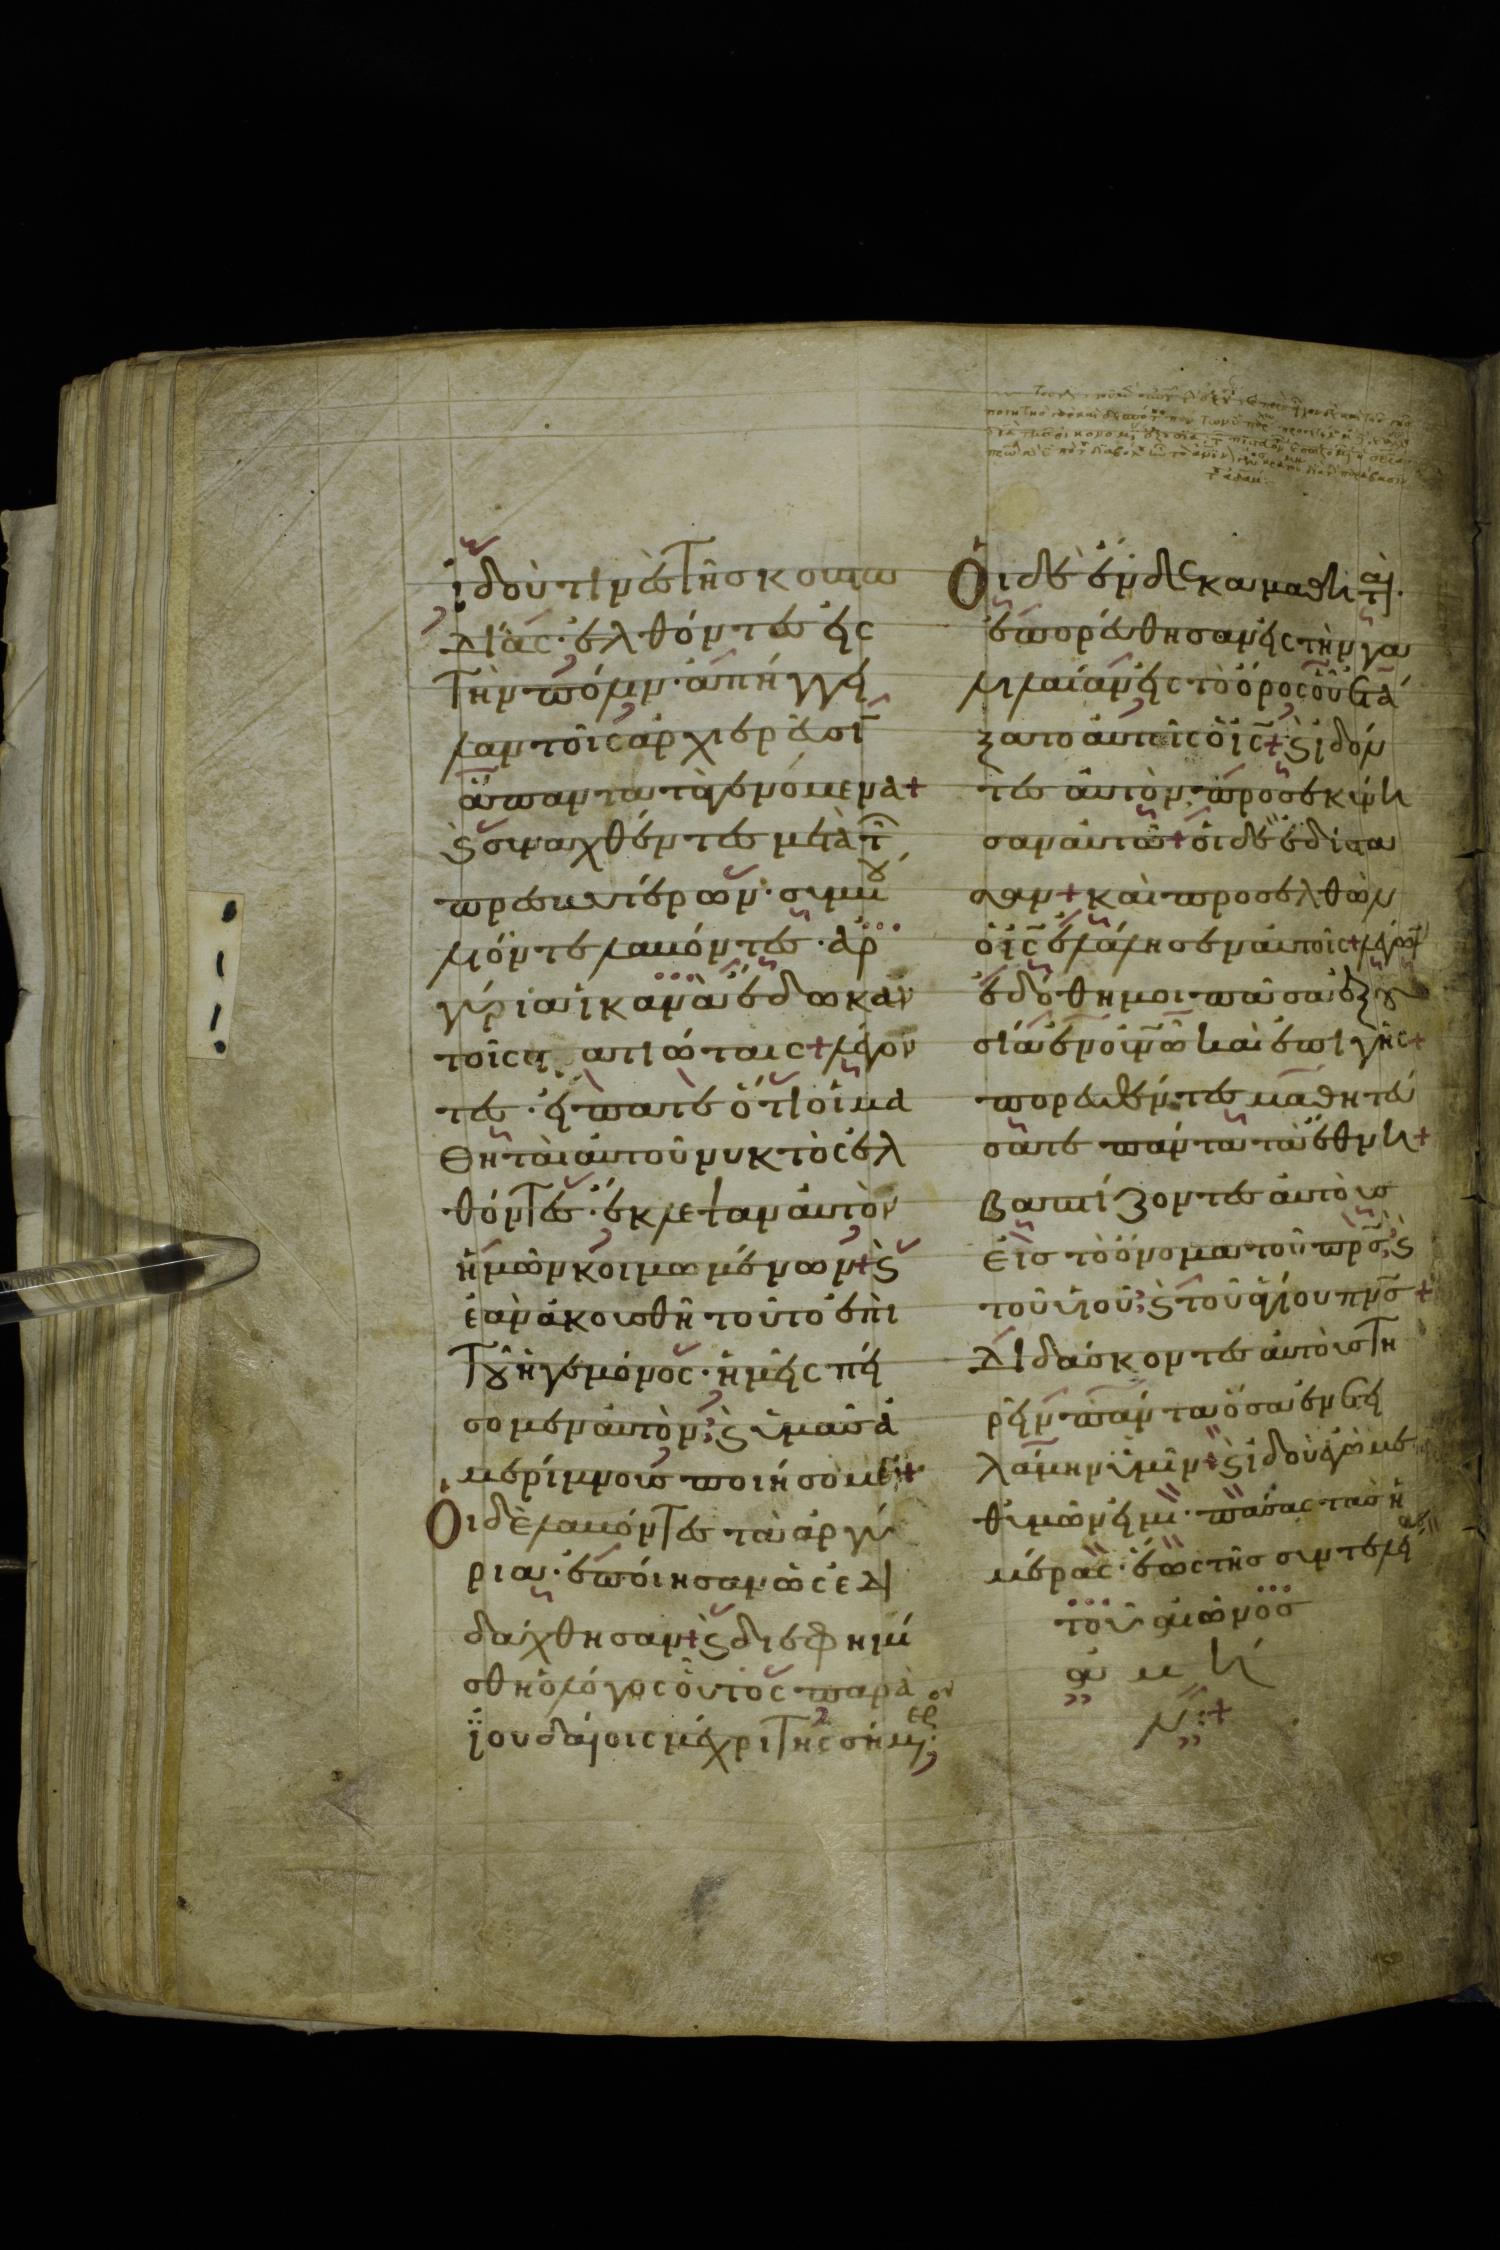 ἰδοὺ τινὲς τῆς κουστω
δίας· ἐλθόντες εἰς
τὴν πόλιν· ἀπήγγει
λαν τοῖς ἀρχιερεῦσιν
ἅπαντα τὰ γενόμενα+
Ϗ συναχθέντες μετὰ τῶν
πρεσβυτέρων· συμβού
λιόν τε λαβόντες· ἀρ
γύρια ἱκανὰ ἔδωκαν
τοῖς στρατιώταις+λέγον
τες· εἴπατε ὅτι οἱ μα
θηταὶ αὐτοῦ νυκτὸς ἐλ
θόντες· ἔκλεψαν αὐτὸν
ἡμῶν κοιμωμένων+Ϗ
ἐὰν ἀκουσθῆ τοῦτο ἐπὶ
τοῦ ἡγεμόνος· ἡμεῖς πεί
σομεν αὐτὸν; Ϗ ὑμᾶς ἀ
μερίμνους ποιήσομεν+
Οἱ δὲ λαβόντες τὰ ἀργύ
ρια· ἐποίησαν ὡς ἐδι
δάχθησαν+Ϗ διεφημί
σθη ὁ λόγος οὗτος παρὰ
ἰουδαίοις μέχρι τῆς σήμερον
Οἱ δὲ ἕνδεκα μαθηταὶ·
ἐπορεύθησαν εἰς τὴν γα
λιλαίαν εἰς τὸ ὄρος οὗ ἐτά
ξατο αὐτοῖς ὁ ἰς+Ϗ ἰδόν
τες αὐτὸν· προσεκύνη
σαν αὐτῶ+οἱ δὲ ἐδίστα
σαν+καὶ προσελθὼν
ὁ ἰς ἐλάλησεν αὐτοῖς+λέγων
ἐδόθη μοι πᾶσα ἐξου
σία ἐν οὐνῶ καὶ ἐπὶ γῆς+
πορευθέντες μαθητεύ
σατε πάντα τὰ ἔθνη+
βαπτίζοντες αὐτοὺς
εἰς τὸ ὄνομα τοῦ πρς; Ϗ
τοῦ υἱοῦ; Ϗ τοῦ ἁγίου πνς+
διδάσκοντες αὐτοὺς τη
ρεῖν πάντα ὅσα ἐνετει
λάμην ὑμῖν+Ϗ ἰδοὺ ἐγὼ με
θ' ὑμῶν εἰμι· πάσας τὰς ἡ
μέρας· ἕως τῆς συντελεί
ας
τοῦ αἰῶνος
ἀμὴ
ν:+